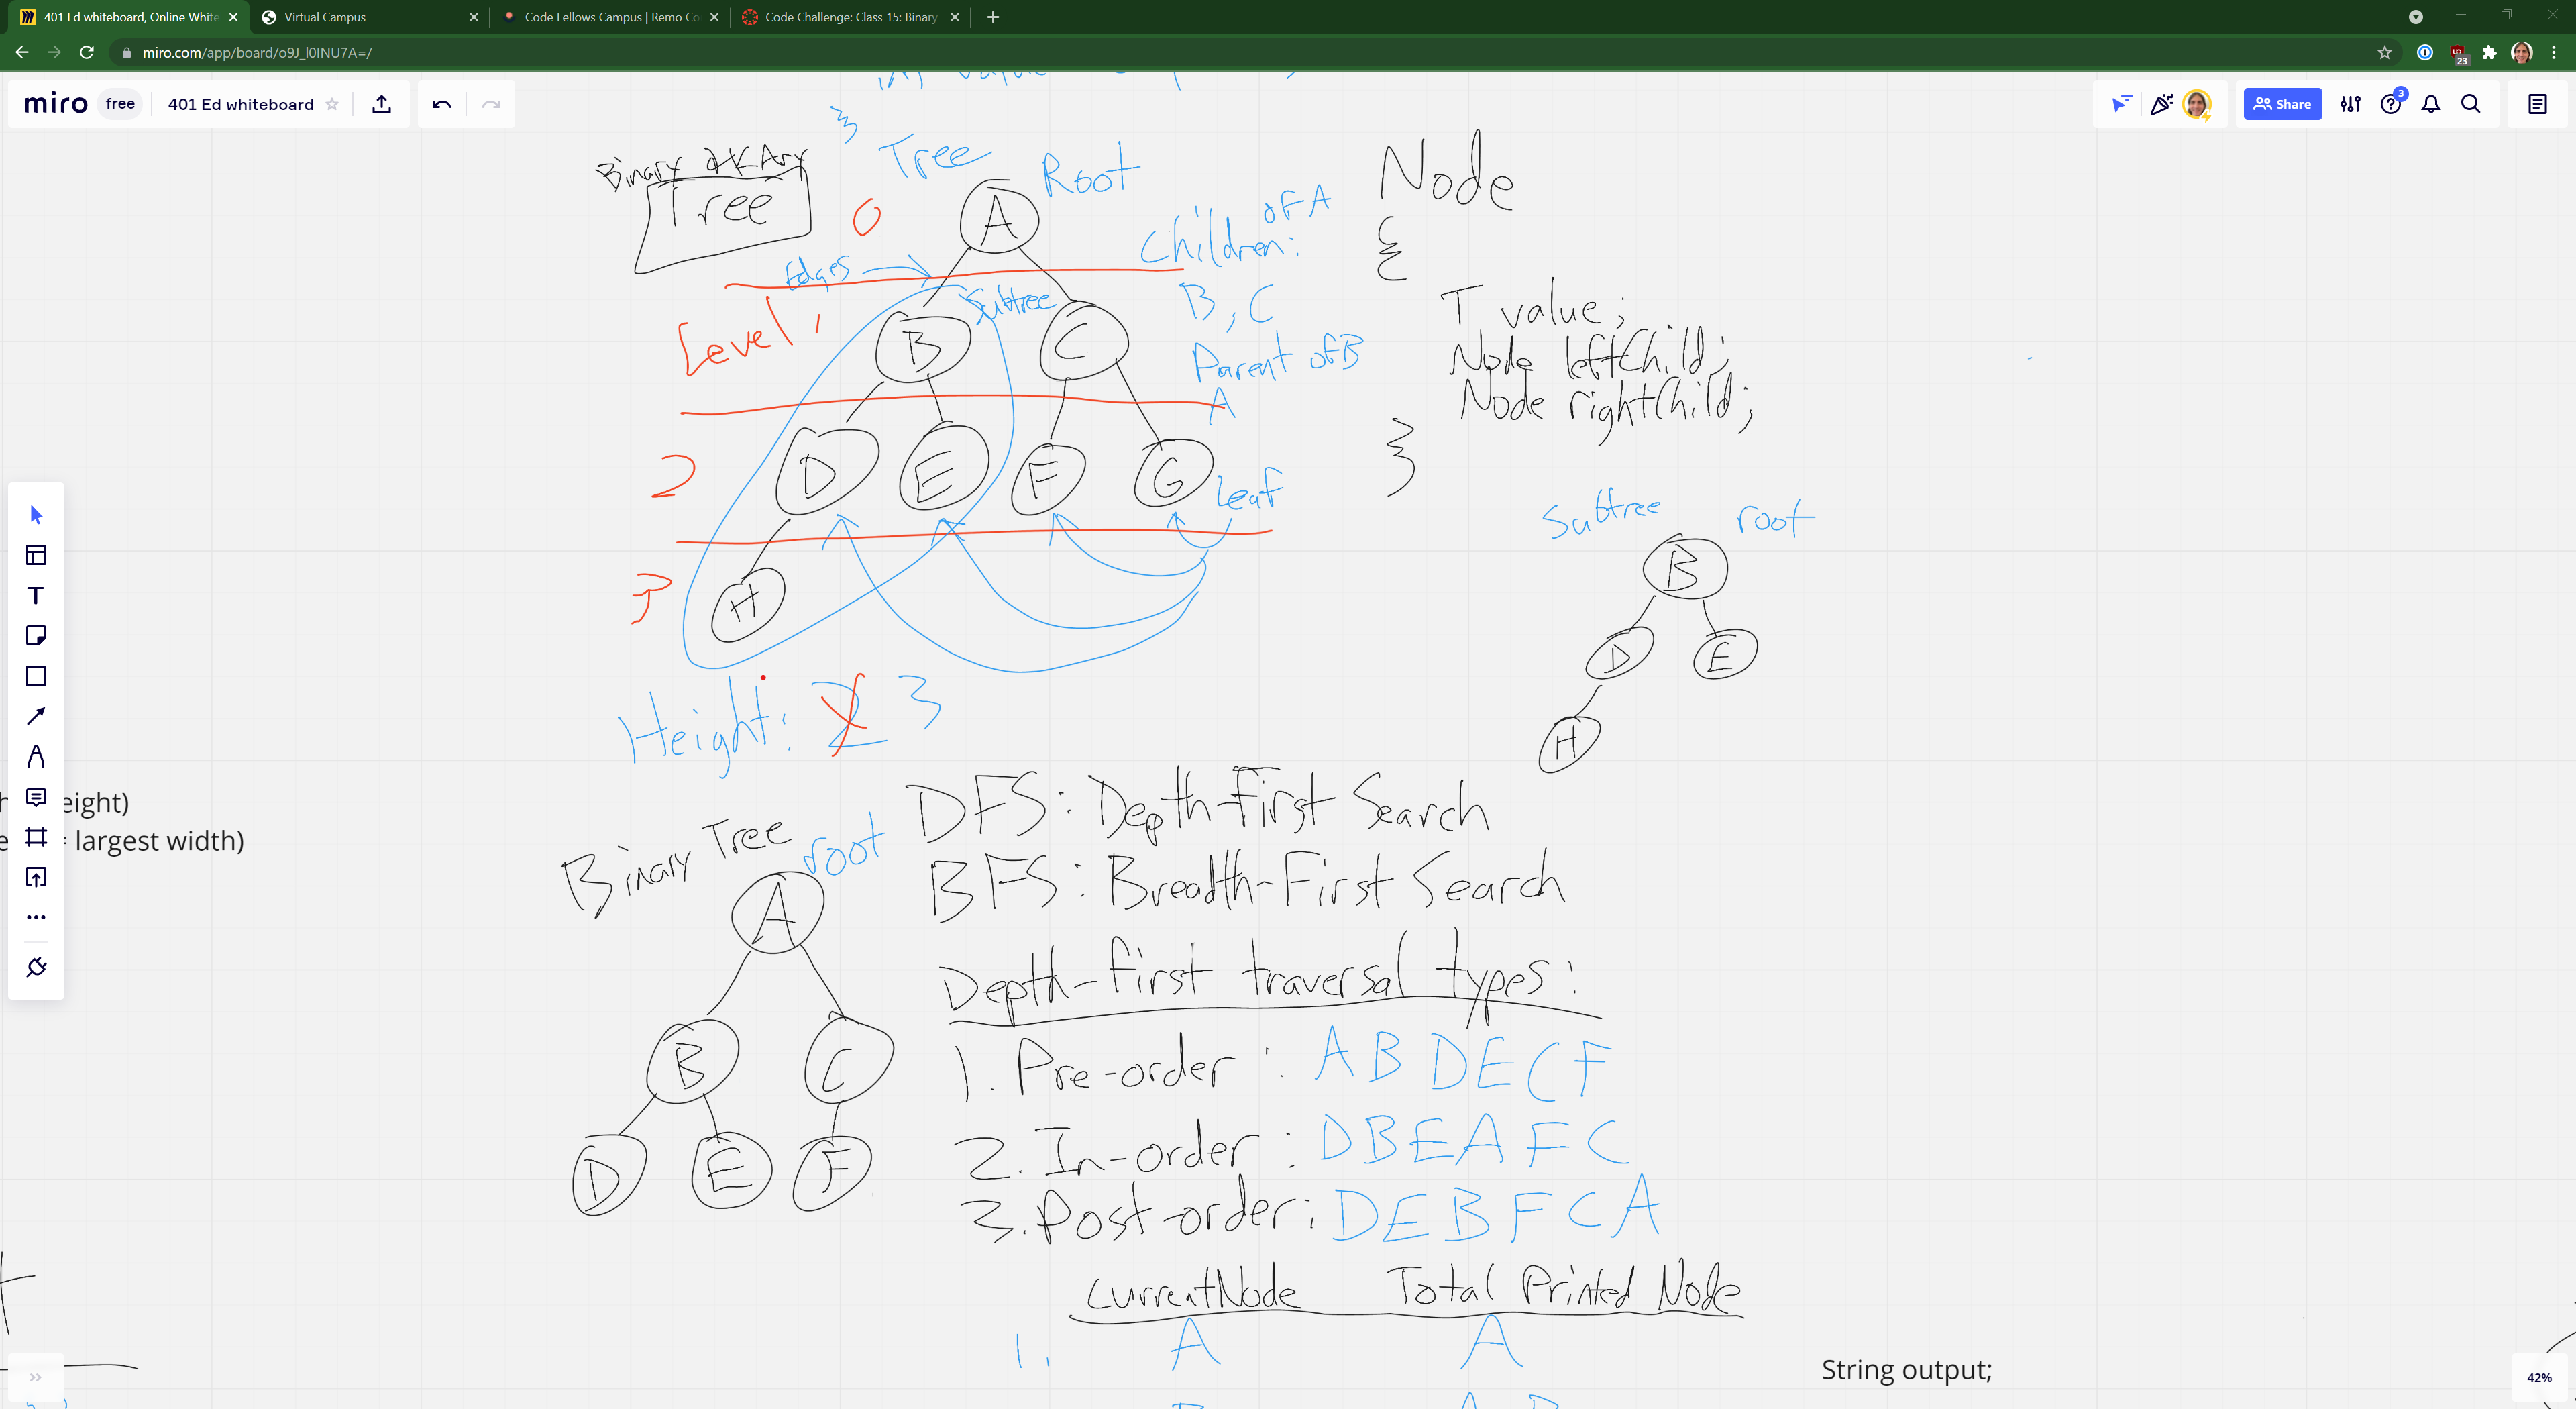 401 Ed whiteboard, Online White
Virtual Campus
Code Fellows Campus | Remo Co
Code Challenge: Class 15: Binary
miro.com/app/board/o9J_l0INU7A=/
23
miro
free
401 Ed whiteboard
3
Share
}
Tree
Binary
Tree
Root
0
A
of A
Children:
B, C
Edges
Subtree
Level 1
B
C
Parent of B
A
2
D
E
F
G
Leaf
3
H
Height: 2 3
Node
{
T value;
Node leftChild;
Node rightChild;
}
Subtree
root
B
D
E
H
eight)
= largest width)
Binary Tree
root
A
B
C
D
E
F
DFS: Depth-First Search
BFS: Breadth-First Search
Depth-first traversal types:
1. Pre-order: A B D E C F
2. In-order: D B E A F C
3. Post-order: D E B F C A
currentNode Total Printed Node
1. A A
String output;
42%